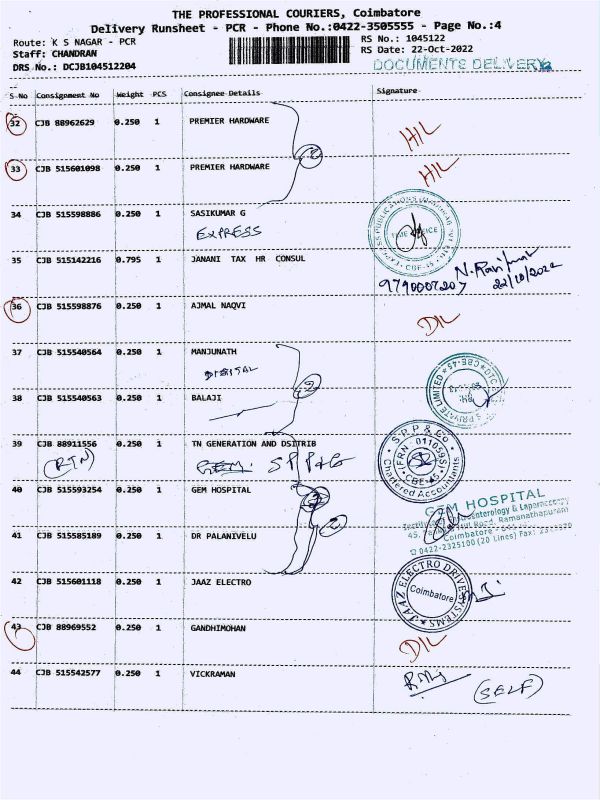 THE PROFESSIONAL COURIERS, Coimbatore
Delivery Runsheet - PCR - Phone No.:0422-3505555 - Page No.:4
Route: K S NAGAR - PCR
RS No.: 1045122
Staff: CHANDRAN
RS Date: 22-Oct-2022
DRS No.: DCJB104512204
DOCUMENTS DELIVERY
S No Consignment No Weight PCS Consignee Details Signature
32 CJB 88962629 0.250 1 PREMIER HARDWARE
33 CJB 515601098 0.250 1 PREMIER HARDWARE
34 CJB 515598886 0.250 1 SASIKUMAR G
EXPRESS
TIME OFFICE
CBE-45
35 CJB 515142216 0.795 1 JANANI TAX HR CONSUL
9790007207 22/10/2022
36 CJB 515598876 0.250 1 AJMAL NAQVI
D/L
37 CJB 515540564 0.250 1 MANJUNATH
DIGITAL
38 CJB 515540563 0.250 1 BALAJI
PRIVATE LIMITED
CBE-45
39 CJB 88911556 0.250 1 TN GENERATION AND DSITRIB
(RTN) SPP&Co
S.P.P & Co
(FRN - 011059S)
CBE-45
Chartered Accountants
40 CJB 515593254 0.250 1 GEM HOSPITAL
GEM HOSPITAL
Gastroenterology & Laparoscopy
Road, Ramanathapuram
Coimbatore
0422-2325100 (20 Lines) Fax:
41 CJB 515585189 0.250 1 DR PALANIVELU
42 CJB 515601118 0.250 1 JAAZ ELECTRO
JAAZ ELECTRO DRIVE SYSTEMS
Coimbatore
43 CJB 88969552 0.250 1 GANDHIMOHAN
D/L
44 CJB 515542577 0.250 1 VICKRAMAN
(SELF)